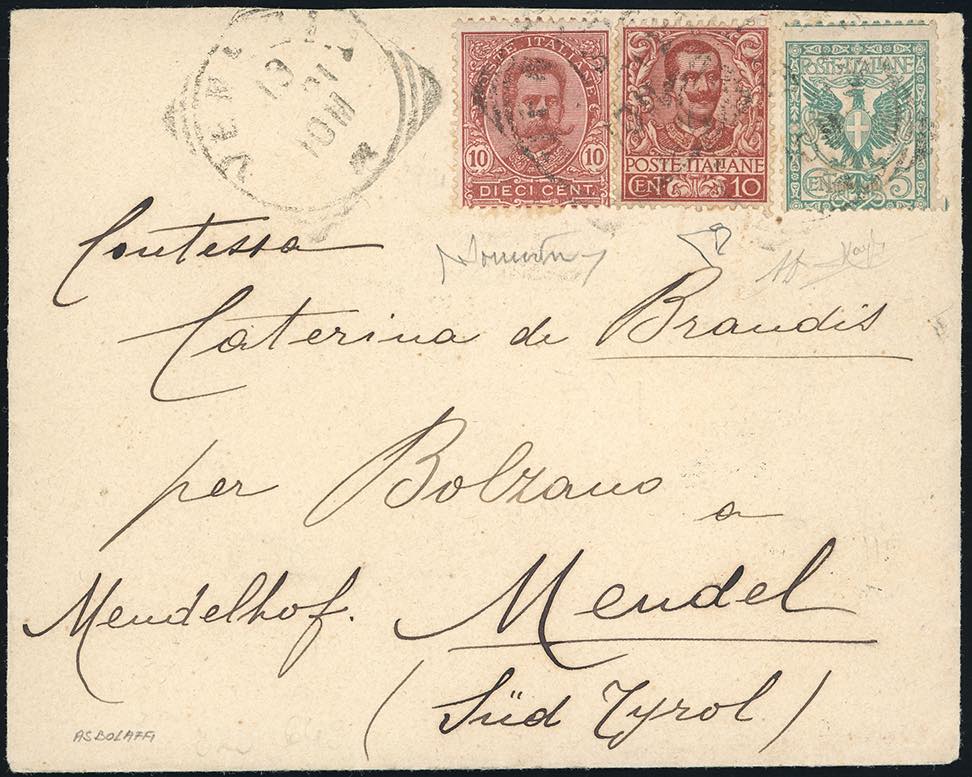 VENEZIA
10 M
POSTE ITALIANE
10 10
DIECI CENT.
POSTE·ITALIANE
CENT 10
POSTE·ITALIANE
CENT 5
Contessa
Caterina de Brandis
per Bolzano
a
Mendelhof. Mendel
(Süd Tyrol)
ASBOLAFFI